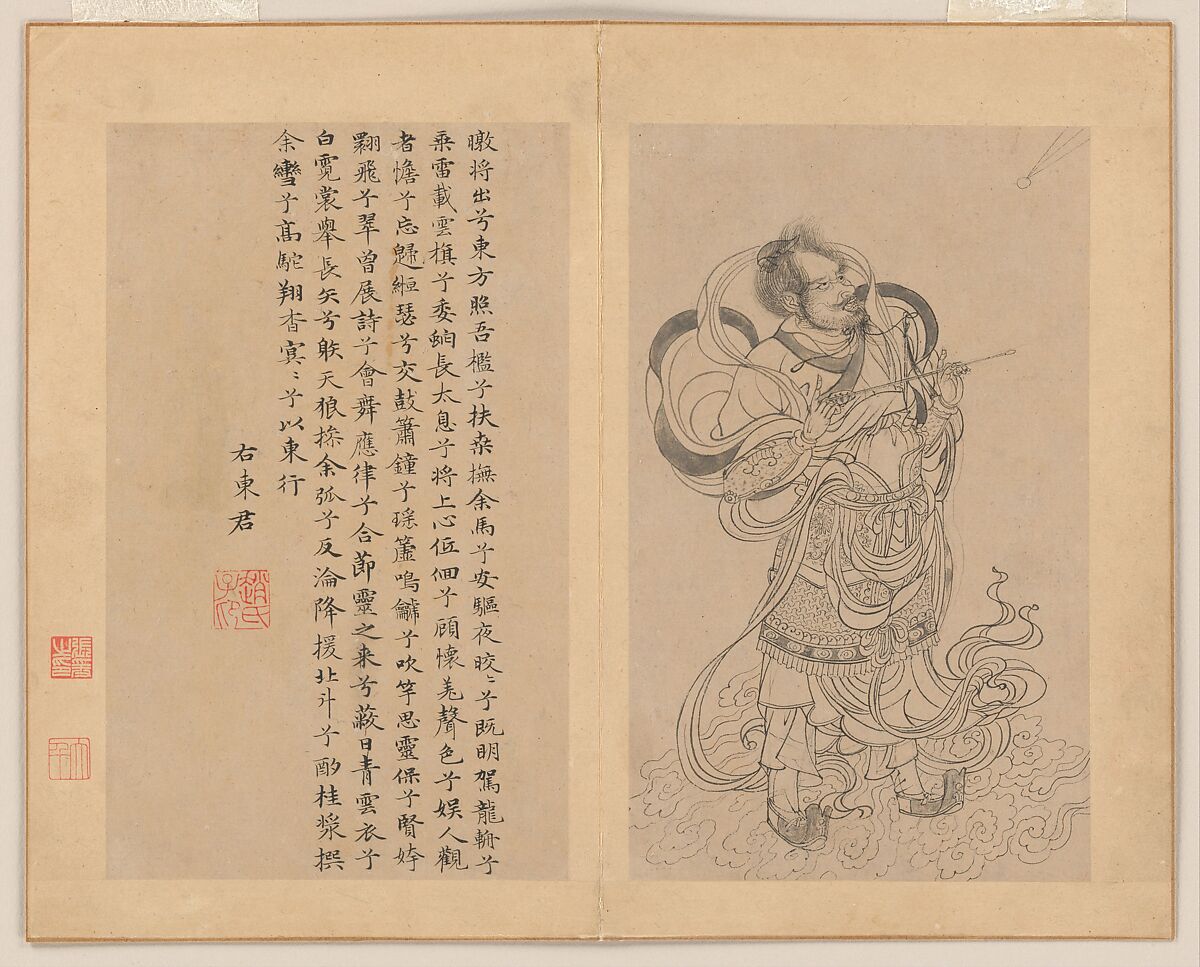 暾将出兮東方照吾檻兮扶桒撫余馬兮安驅夜晈〻兮既明駕龍輈兮
乘雷載雲旗兮委蛇長太息兮将上心低佪兮顧懷羌聲色兮娛人觀
者憺兮忘歸緪瑟兮交鼓簫鐘兮瑤簴鳴䶵兮吹竽思靈保兮賢姱
翾飛兮翠曾展詩兮會舞應律兮合節靈之来兮蔽日青雲衣兮
白霓裳舉長矢兮躲天狼操余弧兮反淪降援北斗兮酌桂漿撰
余轡兮高駝翔杳冥〻兮以東行
右東君
趙氏子印